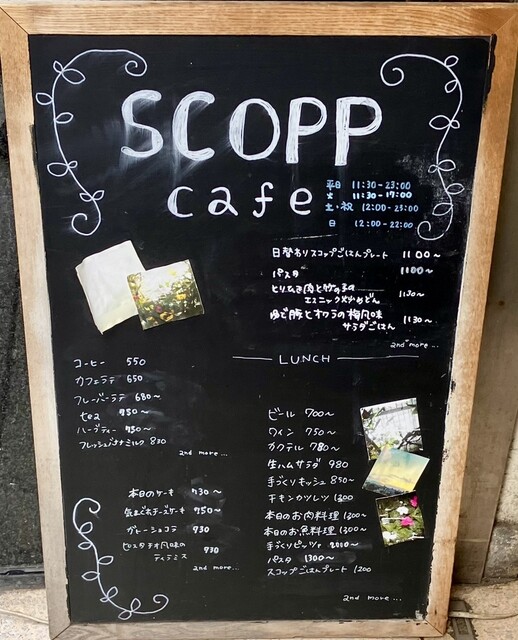 SCOPP
cafe
平日 11:30-23:00
火 11:30-17:00
土・祝 12:00-23:00
日 12:00-22:00
日替わりスコップごはんプレート 1100~
パスタ 1100~
とりひき肉と竹の子の
エスニック炒めどん 1130~
ゆで豚とオクラの梅風味
サラダごはん 1130~
and more...
LUNCH
コーヒー 550
カフェラテ 650
フレーバーラテ 680~
tea 750~
ハーブティー 750~
フレッシュバナナミルク 830
and more...
本日のケーキ 730~
気まぐれチーズケーキ 750~
ガトーショコラ 730
ピスタチオ風味の
ティラミス 730
and more...
ビール 700~
ワイン 750~
カクテル 780~
生ハムサラダ 980
手づくりキッシュ 850~
チキンカツレツ 1300
本日のお肉料理 1300~
本日のお魚料理 1300~
手づくりピッツァ
パスタ 1300~
スコップごはんプレート 1200
and more...